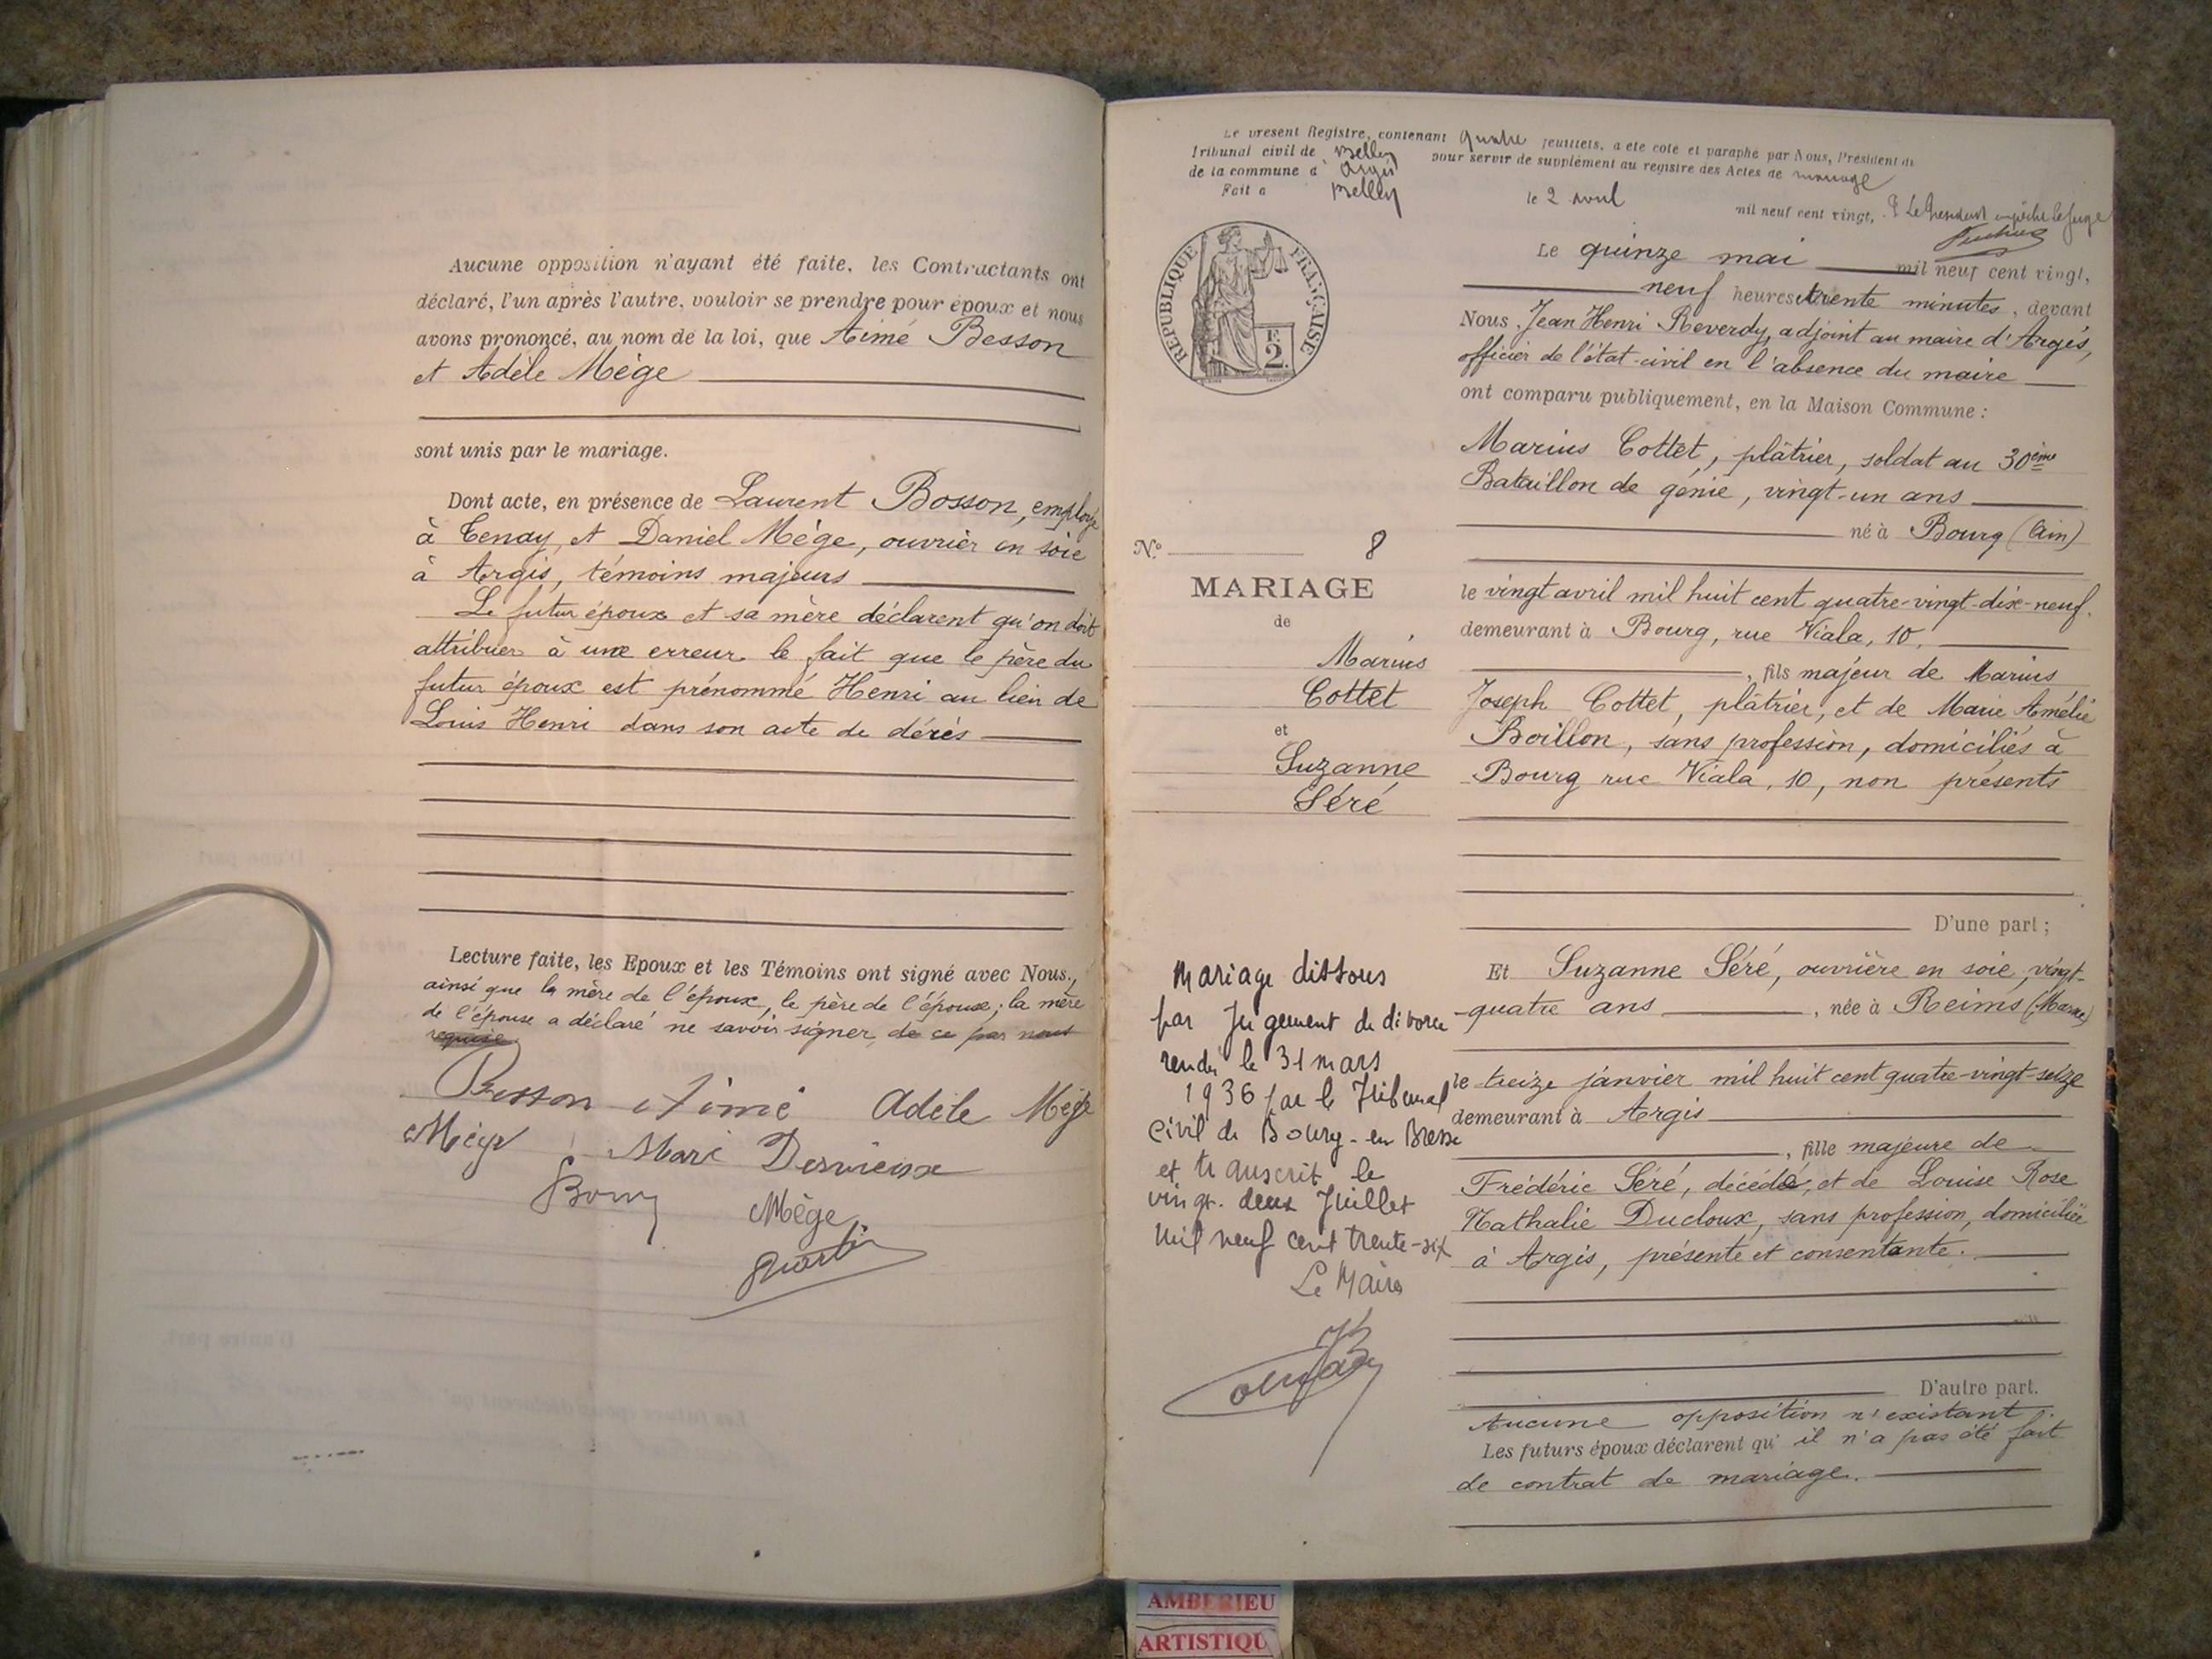 Aucune opposition n'ayant été faite, les Contractants ont
déclaré, l'un après l'autre, vouloir se prendre pour époux et nous
avons prononcé, au nom de la loi, que Aimé Besson
et Adèle Mège
sont unis par le mariage.
Dont acte, en présence de Laurent Bosson, employé
à Tenay, et Daniel Mège, ouvrier en soie
à Argis, témoins majeurs
Le futur époux et sa mère déclarent qu'on doit
attribuer à une erreur le fait que le père du
futur époux est prénommé Henri au lieu de
Louis Henri dans son acte de décès
Lecture faite, les Epoux et les Témoins ont signé avec Nous,
ainsi que la mère de l'époux, le père de l'épouse; la mère
de l'épouse a déclaré ne savoir signer, de ce par nous
requise
Besson Aimé Adèle Mège
Mège Marie
Mège
Le présent Registre, contenant quatre feuillets, a été coté et paraphé par Nous, Président du
Tribunal civil de Belley pour servir de supplément au registre des Actes de mariage
de la commune d'Argis
Fait à Belley le 2 avril mil neuf cent vingt, Le Président empêché le juge
RÉPUBLIQUE FRANÇAISE
F.
2.
Le quinze mai mil neuf cent vingt,
neuf heures trente minutes, devant
Nous, Jean Henri Reverdy, adjoint au maire d'Argis,
officier de l'état-civil en l'absence du maire
ont comparu publiquement, en la Maison Commune :
Marius Cottet, plâtrier, soldat au 30ème
Bataillon de génie, vingt-un ans
né à Bourg (Ain)
le vingt avril mil huit cent quatre-vingt-dix-neuf.
demeurant à Bourg, rue Viala, 10,
, fils majeur de Marius
Joseph Cottet, plâtrier, et de Marie Amélie
Boillon, sans profession, domiciliés à
Bourg rue Viala, 10, non présents
D'une part ;
N° 8
MARIAGE
de
Marius
Cottet
et
Suzanne
Séré
Mariage dissous
par Jugement de divorce
rendu le 31 mars
1936 par le Tribunal
Civil de Bourg-en Bresse
et transcrit le
vingt-deux Juillet
mil neuf cent trente-six
Le Maire
Et Suzanne Séré, ouvrière en soie, vingt-
quatre ans , née à Reims (Marne)
le treize janvier mil huit cent quatre-vingt-seize
demeurant à Argis
, fille majeure de
Frédéric Séré, décédé, et de Louise Rose
Nathalie Ducloux, sans profession, domiciliée
à Argis, présente et consentante.
D'autre part.
Aucune opposition n'existant
Les futurs époux déclarent qu'il n'a pas été fait
de contrat de mariage.
AMBERIEU
ARTISTIQU